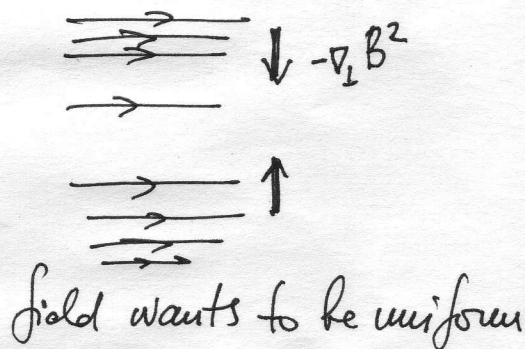 -∇⊥B²
field wants to be uniform